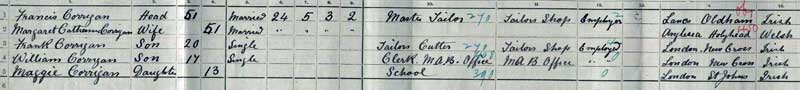 1 Francis Corrigan Head 51 Married 24 5 3 2 Master Tailor 270 Tailors Shop Employer Lancs Oldham Irish
2 Margaret Catherine Corrigan Wife 51 Married " " " " Anglesea Holyhead Welsh
3 Frank Corrigan Son 20 Single Tailors Cutter 270 Tailors Shop Employed London New Cross Irish
4 William Corrigan Son 17 Single Clerk M.A.B. Office M.A.B. Office " London New Cross Irish
5 Maggie Corrigan Daughter 13 School 390 0 London St Johns Irish